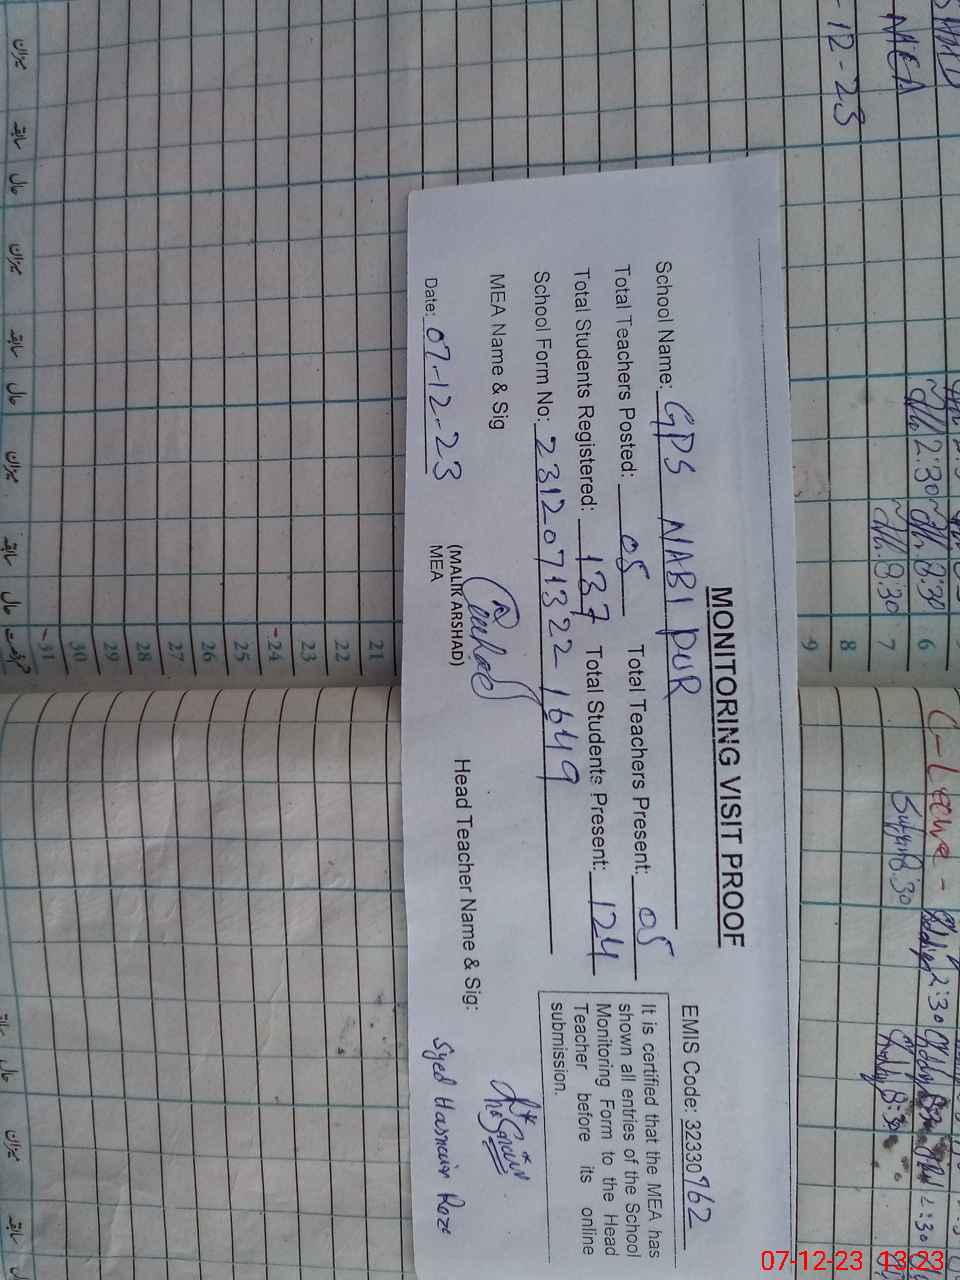 MONITORING VISIT PROOF
EMIS Code: 32330962
School Name: GPS NABI PUR
Total Teachers Posted: 05 Total Teachers Present: 05
Total Students Registered: 137 Total Students Present: 124
School Form No: 23120713221649
It is certified that the MEA has
shown all entries of the School
Monitoring Form to the Head
Teacher before its online
submission.
MEA Name & Sig
(MALIK ARSHAD)
MEA
Head Teacher Name & Sig:
Syed Hasnain Raza
Date: 07-12-23
MEA
-12-23
6
7
8
9
21
22
23
24
25
26
27
28
29
30
31
2:30
8:30
8:30
C-Leave -
8:30
2:30
8:30
2:30
میزان
سابقہ
حال
میزان
سابقہ
حال
میزان
سابقہ
حال
حال
میزان
سابقہ
07-12-23 13:23